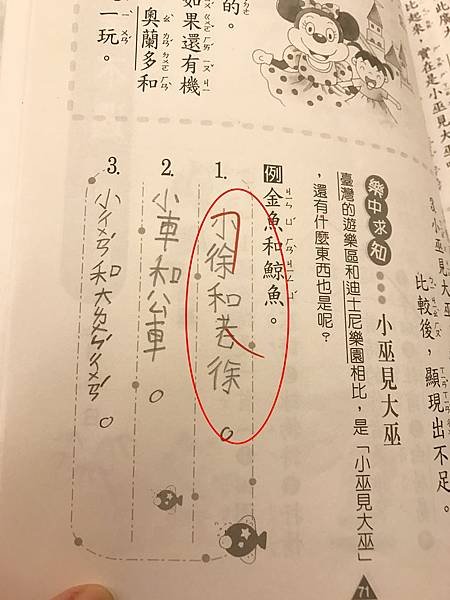 比起來，實在是小巫見大巫
比較後，顯現出不足。
的。
如果還有機
奧蘭多和
一玩。
樂中求知 小巫見大巫
臺灣的遊樂區和迪士尼樂園相比，是「小巫見大巫」
，還有什麼東西也是呢？
例 金魚和鯨魚。
1. 小徐和巷徐。
2. 小車和公車。
3. 小ㄔㄨㄢˊ和大ㄔㄨㄢˊ。
71